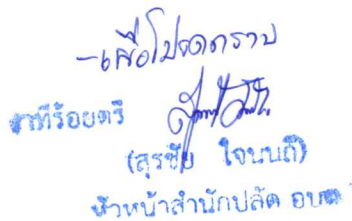 -เพื่อโปรดทราบ
ว่าที่ร้อยตรี
(สุรชัย ใจนนถี)
หัวหน้าสำนักปลัด อบต